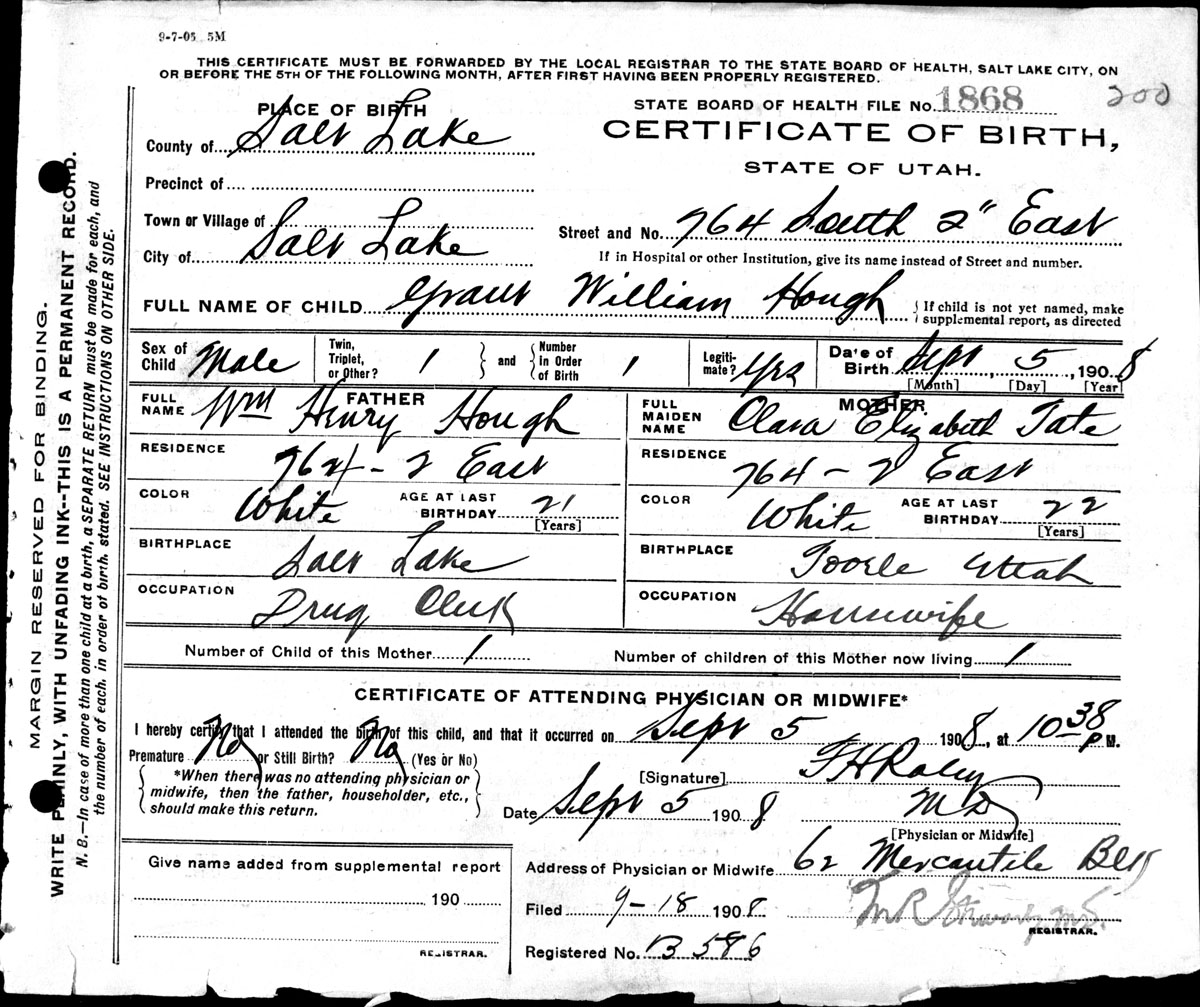 9-7-05 5M
THIS CERTIFICATE MUST BE FORWARDED BY THE LOCAL REGISTRAR TO THE STATE BOARD OF HEALTH, SALT LAKE CITY, ON
OR BEFORE THE 5TH OF THE FOLLOWING MONTH, AFTER FIRST HAVING BEEN PROPERLY REGISTERED.
PLACE OF BIRTH
STATE BOARD OF HEALTH FILE No. 1868 200
CERTIFICATE OF BIRTH,
STATE OF UTAH.
County of Salt Lake
Precinct of
Town or Village of
City of Salt Lake
Street and No. 764 South 2" East
If in Hospital or other Institution, give its name instead of Street and number.
FULL NAME OF CHILD Grant William Hough
{If child is not yet named, make
supplemental report, as directed
Sex of Child Male Twin, Triplet, or Other? 1 and Number in Order of Birth 1 Legiti-mate? Yes Date of Birth Sept 5, 1908
[Month] [Day] [Year]
FATHER
FULL NAME Wm Henry Hough
RESIDENCE 764 - 2 East
COLOR White AGE AT LAST BIRTHDAY 21
[Years]
BIRTHPLACE Salt Lake
OCCUPATION Drug Clerk
MOTHER
FULL MAIDEN NAME Clara Elizabeth Tate
RESIDENCE 764 - 2 East
COLOR White AGE AT LAST BIRTHDAY 22
[Years]
BIRTHPLACE Tooele Utah
OCCUPATION Housewife
Number of Child of this Mother 1 Number of children of this Mother now living 1
CERTIFICATE OF ATTENDING PHYSICIAN OR MIDWIFE*
I hereby certify that I attended the birth of this child, and that it occurred on Sept 5 1908, at 10 38 P M.
Premature No or Still Birth? No (Yes or No)
*When there was no attending physician or
midwife, then the father, householder, etc.,
should make this return.
[Signature]
M D
[Physician or Midwife]
Date Sept 5 1908
Address of Physician or Midwife 62 Mercantile Blk
Filed 9-18 1908
REGISTRAR.
Registered No. B 586
Give name added from supplemental report
190
REGISTRAR.
MARGIN RESERVED FOR BINDING.
WRITE PLAINLY, WITH UNFADING INK--THIS IS A PERMANENT RECORD.
N. B.—In case of more than one child at a birth, a SEPARATE RETURN must be made for each, and
the number of each, in order of birth, stated. SEE INSTRUCTIONS ON OTHER SIDE.